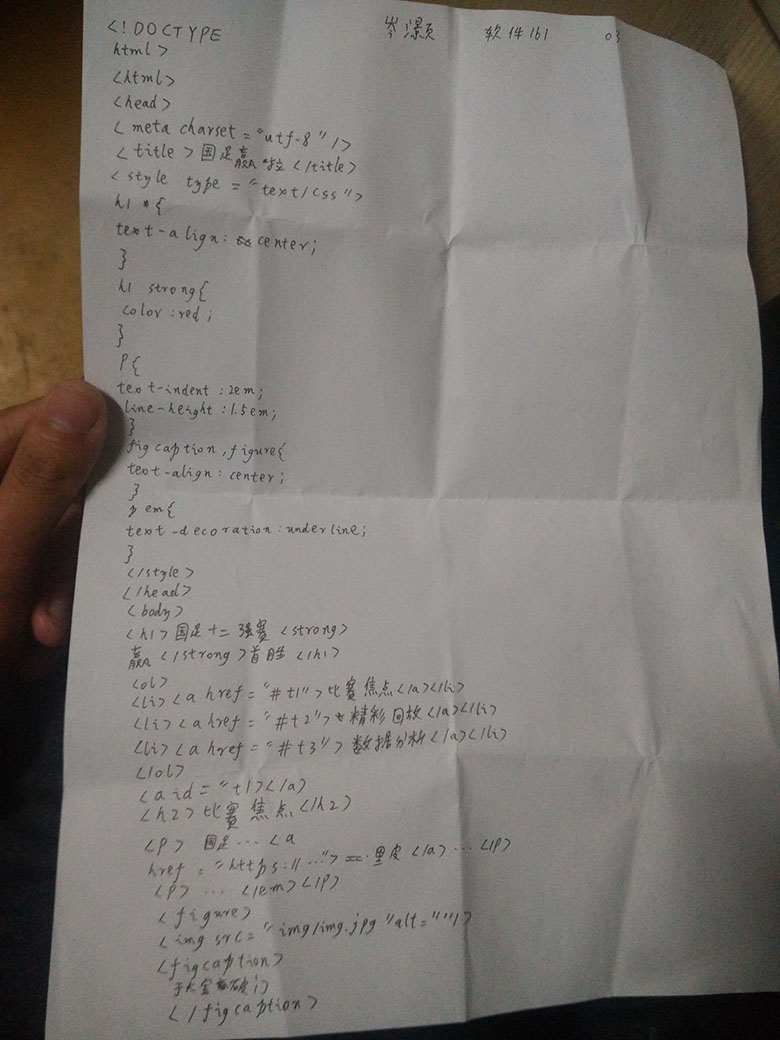 岑灏颖 软件161 03
<!DOCTYPE
html>
<html>
<head>
<meta charset="utf-8"/>
<title>国足赢啦</title>
<style type="text/css">
h1 {
text-align: center;
}
h1 strong{
color:red;
}
p{
text-indent:2em;
line-height:1.5em;
}
figcaption,figure{
text-align:center;
}
p em{
text-decoration:underline;
}
</style>
</head>
<body>
<h1>国足十二强赛<strong>
赢</strong>首胜</h1>
<ol>
<li><a href="#t1">比赛焦点</a></li>
<li><a href="#t2">精彩回放</a></li>
<li><a href="#t3">数据分析</a></li>
</ol>
<a id="t1></a>
<h2>比赛焦点</h2>
<p>国足...<a
href="https://...">里皮</a>...</p>
<p>...</em></p>
<figure>
<img src="img/img.jpg"alt=""/>
<figcaption>
于大宝破门
</figcaption>